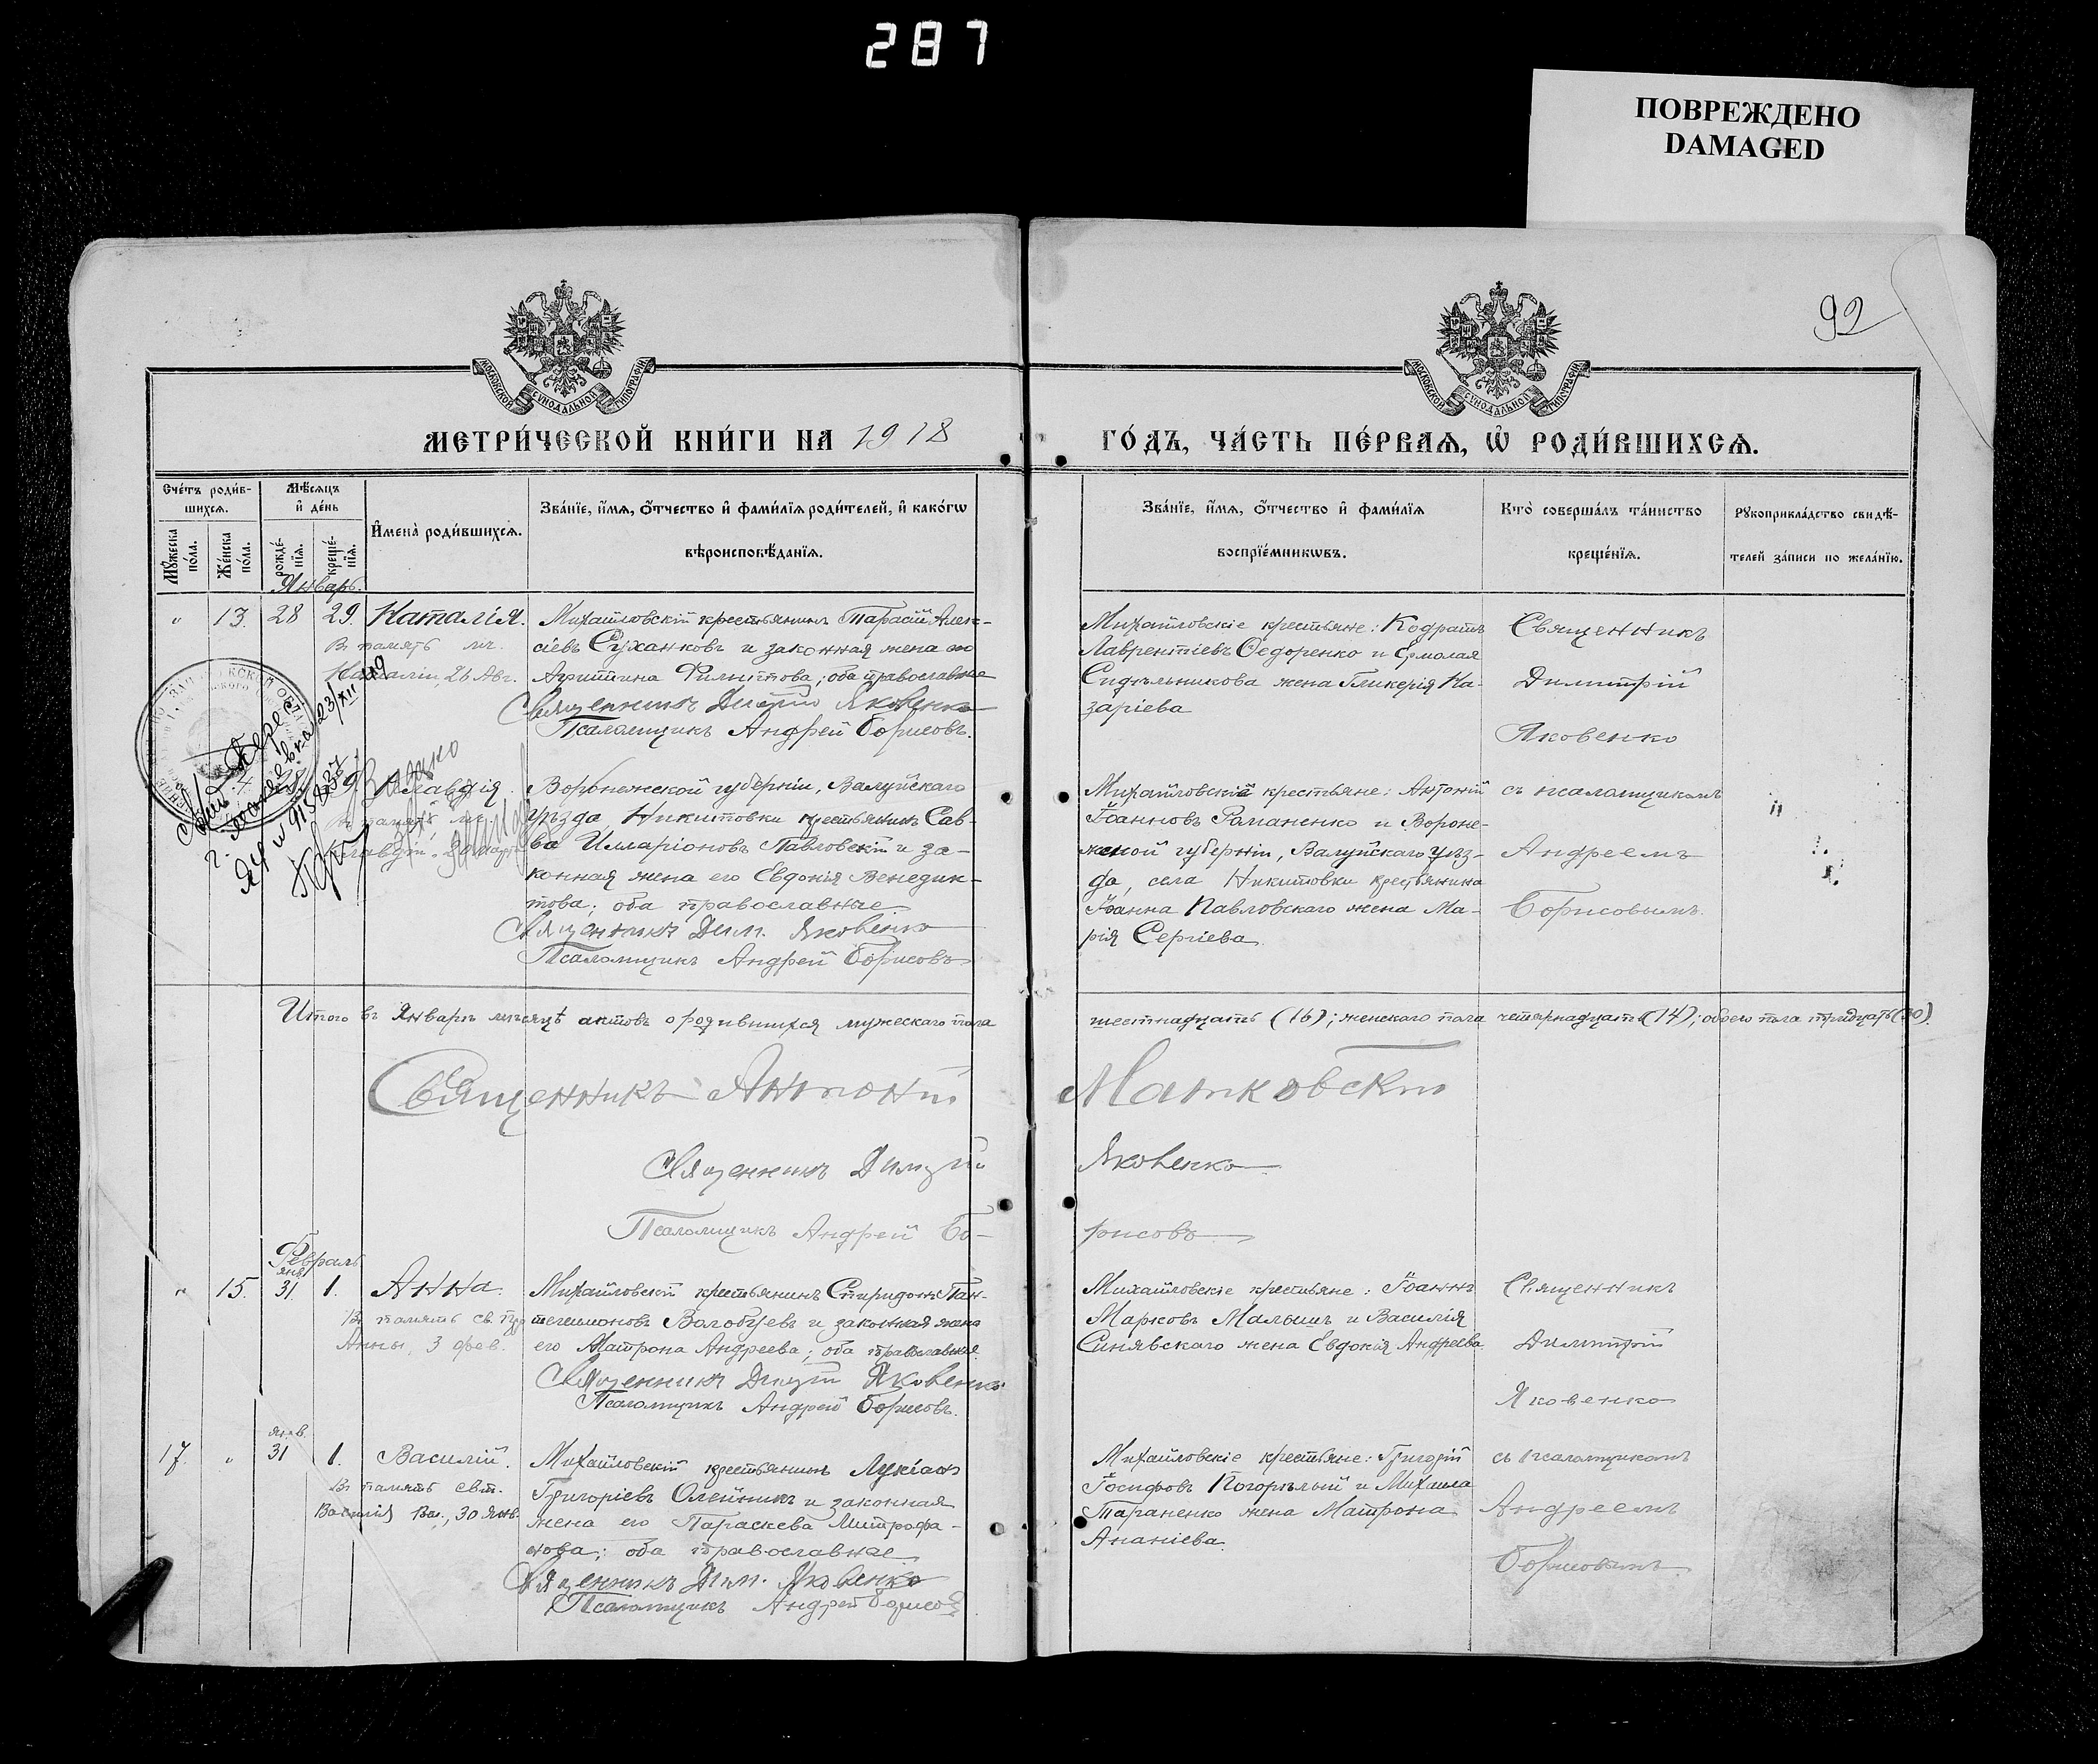 287
ПОВРЕЖДЕНО
DAMAGED
92
МОСКОВСКОЙ СУНОДАЛЬНОЙ ТИПОГРАФІИ
МОСКОВСКОЙ СУНОДАЛЬНОЙ ТИПОГРАФІИ
МЕТРИ́ЧЕСКОЙ КНИ́ГИ НА 1918
ГО́ДЪ, ЧА́СТЬ ПЕ́РВАѦ, Ѡ҆ РОДИ́ВШИХСѦ.
Сче́тъ роди́в-
шихсѧ.
Мꙋ́жеска по́ла.
Же́нска по́ла.
Мѣ́сѧцъ
и҆ де́нь
рожде́-нїѧ.
креще́-нїѧ.
И҆мена̀ роди́вшихсѧ.
Зва́нїе, и҆́мѧ, ѻ҆́тчество и҆ фами́лїѧ роди́телей, и҆ како́гѡ
вѣроисповѣ́данїѧ.
Зва́нїе, и҆́мѧ, ѻ҆́тчество и҆ фами́лїѧ
воспрїе́мникѡвъ.
Кто̀ соверша́лъ та́инство
креще́нїѧ.
Рꙋкоприкла́дство свидѣ́-
телей за́писи по жела́нїю.
Январь.
" 13. 28 29. Наталія.
Въ память мц.
Наталіи, 26 Авг.
Михайловскій крестьянинъ Тарасій Алек-
сіевъ Суханковъ и законная жена его
Агриппина Филиппова; оба православные
Священникъ Димитрій Яковенко
Псаломщикъ Андрей Борисовъ.
Михайловскіе крестьяне: Кодратъ
Лаврентіевъ Ѳедоренко и Ермолая
Сидѣльникова жена Гликерія На-
заріева
Священникъ
Димитрій
Яковенко
Клавдія.
Въ память мц.
Клавдіи, 20 март
Воронежской губерніи, Валуйскаго
уѣзда Никитовки крестьянинъ Сав-
ва Илларіоновъ Павловскій и за-
конная жена его Евдокія Венедик-
това; оба православные
Священникъ Дим. Яковенко
Псаломщикъ Андрей Борисовъ
Михайловскій крестьяне: Антоній
Іоанновъ Романенко и Вороне-
жской губерніи, Валуйскаго уѣз-
да, села Никитовки крестьянина
Іоанна Павловскаго жена Ма-
рія Сергіева
съ псаломщикомъ
Андреемъ
Борисовымъ.
23/XII 49
ЯЧ № 915837
Итого въ Январѣ мѣсяцѣ актовъ о родившихся мужескаго пола
шестнадцать (16); женскаго пола четырнадцать (14); обоего пола тридцать (30).
Священникъ Антоній
Матковскій
Священникъ Димитрій
Яковенко
Псаломщикъ Андрей Бо-
рисовъ
Февраль
янв.
" 15. 31. 1. Анна.
Въ память св. пр
Анны, 3 фев.
Михайловскій крестьянинъ Спиридонъ Пан-
телеимоновъ Волобуевъ и законная жена
его Матрона Андреева; оба православные.
Священникъ Димитрій Яковенко
Псаломщикъ Андрей Борисовъ.
Михайловскіе крестьяне: Іоаннъ
Марковъ Малышъ и Василія
Синявскаго жена Евдокія Андреева
Священникъ
Димитрій
Яковенко
янв.
17. " 31 1. Василій.
Въ память свт.
Василія Вел., 30 Янв.
Михайловскій крестьянинъ Лукіанъ
Григоріевъ Олейникъ и законная
жена его Параскева Митрофа-
нова; оба православные.
Священникъ Дим. Яковенко
Псаломщикъ Андрей Борисовъ
Михайловскіе крестьяне: Григорій
Іосифовъ Погорѣлый и Михаила
Тараненко жена Матрона
Ананіева.
съ псаломщикомъ
Андреемъ
Борисовымъ.